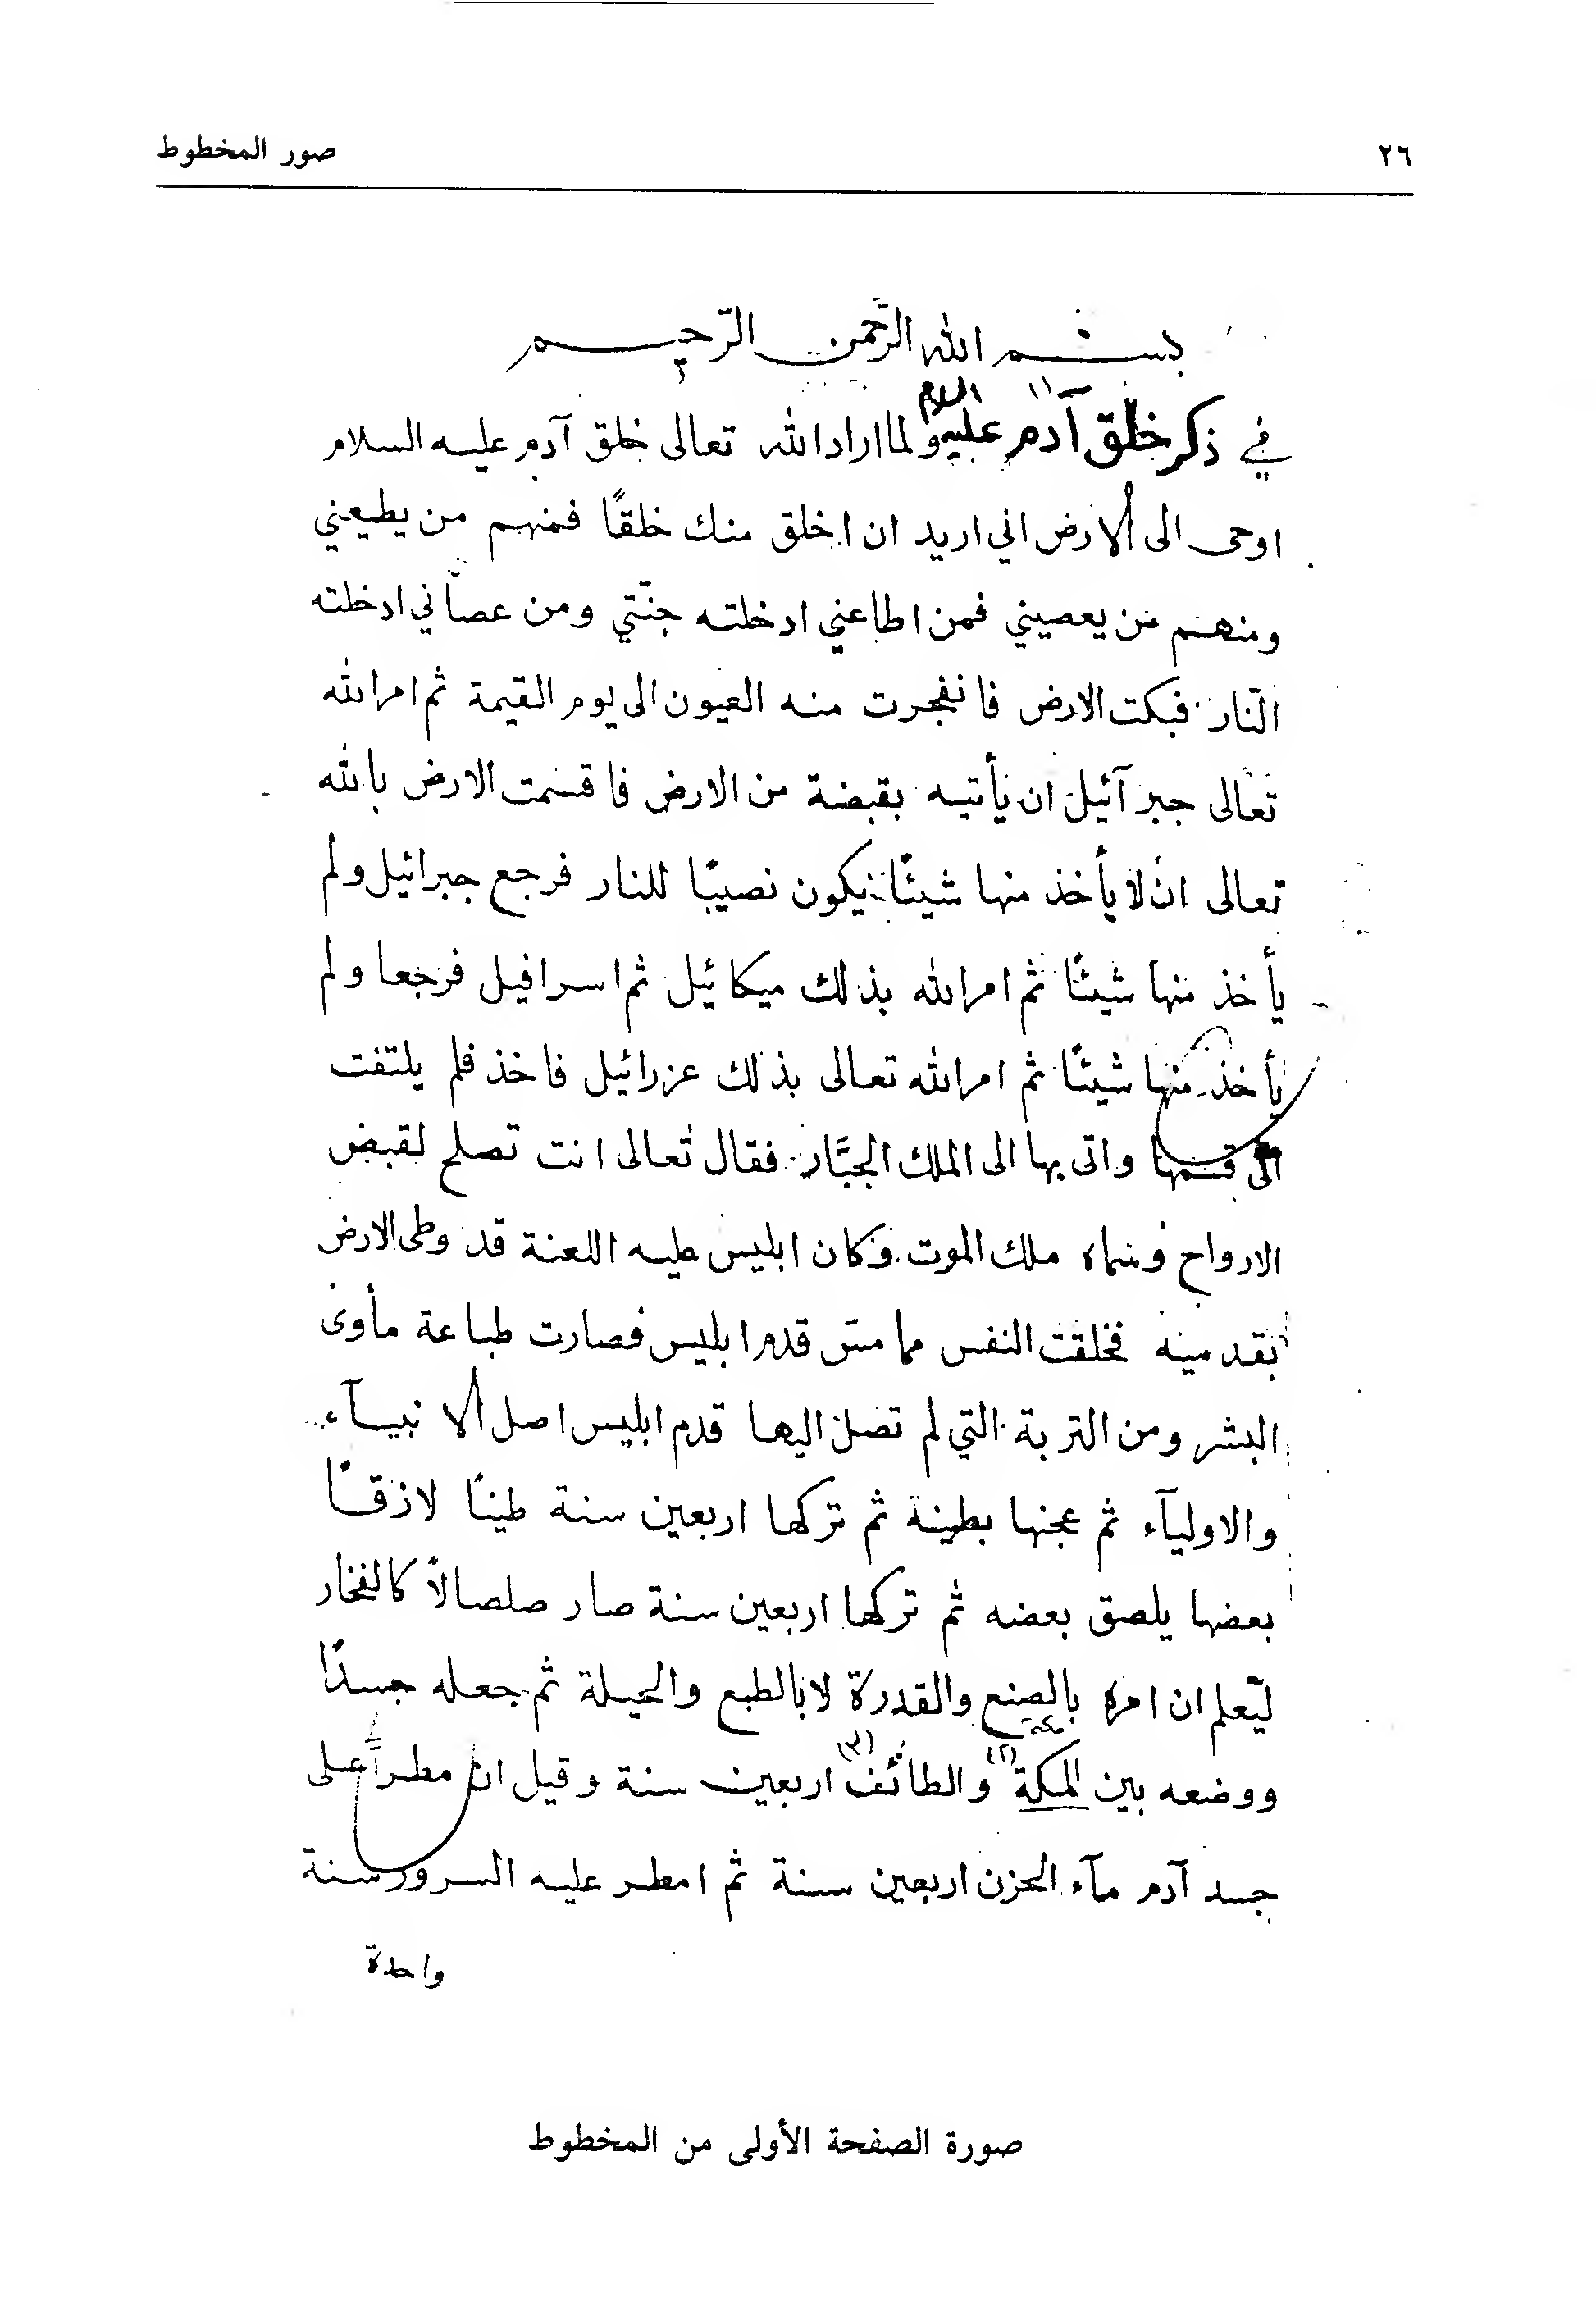 ٢٦
صور المخطوط
بسم الله الرّحمن الرّحيم
في ذكر خلق آدم عليه السلام ولما اراد الله تعالى خلق آدم عليه السلام
(١)
اوحى الى ألارض اني اريد ان اخلق منك خلقًا فمنهم من يطيعني
ومنهم من يعصيني فمن اطاعني ادخلته جنّتي ومن عصاني ادخلته
النّار فبكت الارض فانفجرت منه العيون الى يوم القيمة ثم امر الله
تعالى جبرآئيل ان يأتيه بقبضة من الارض فاقسمت الارض بالله
تعالى ان لا يأخذ منها شيئًا يكون نصيبًا للنار فرجع جبرائيل ولم
يأخذ منها شيئًا ثم امر الله بذلك ميكائيل ثم اسرافيل فرجعا ولم
يأخذ منها شيئًا ثم امر الله تعالى بذلك عزرائيل فاخذ فلم يلتفت
الى قسمها واتى بها الى الملك الجبَّار فقال تعالى انت تصلح لقبض
الارواح وسماه ملك الموت وكان ابليس عليه اللعنة قد وطى الارض
بقدميه فخلقت النفس مما مسّ قدم ابليس فصارت طباعة مأوى
البشر ومن التربة التي لم تصل اليها قدم ابليس اصل ألانبيآء
والاوليآء ثم عجنها بطينة ثم تركها اربعين سنة طينًا لازقًا
بعضها يلصق بعضه ثم تركها اربعين سنة صار صلصالاً كالفخار
ليّعلم ان امره بالصنع والقدرة لا بالطبع والحيلة ثم جعله جسدًا
مكة
ووضعه بين المكة (٢) والطائف (٣) اربعين سنة وقيل ان مطراً على
جسد آدم مآء الحزن اربعين سنة ثم امطر عليه السرور سنة
واحدة
صورة الصفحة الأولى من المخطوط